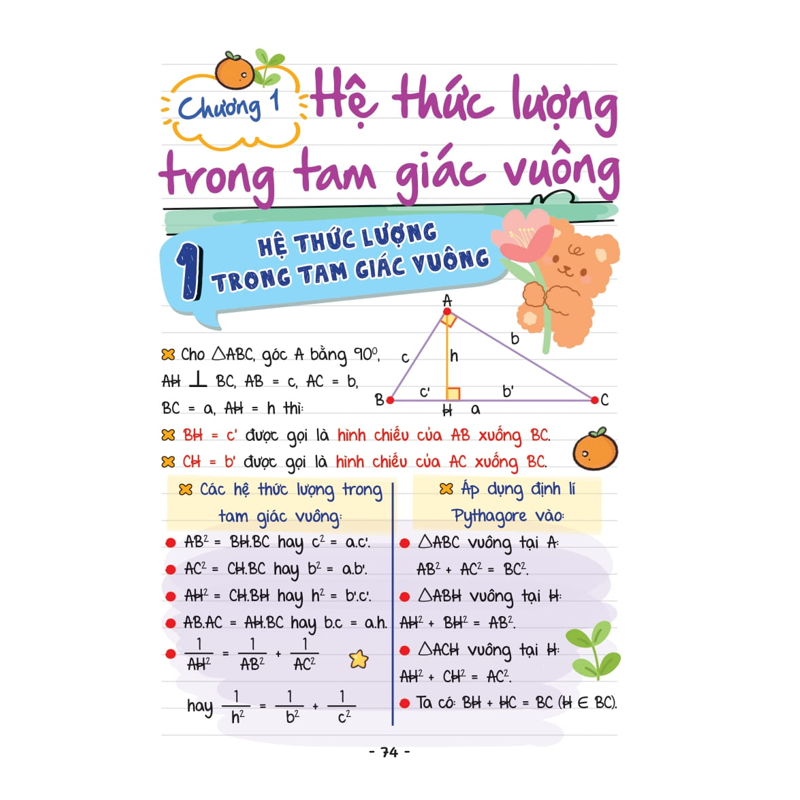 Chương 1
Hệ thức lượng
trong tam giác vuông
1
HỆ THỨC LƯỢNG
TRONG TAM GIÁC VUÔNG
Cho △ABC, góc A bằng 90⁰,
AH ⊥ BC, AB = c, AC = b,
BC = a, AH = h thì:
A
c
h
b
B
c'
b'
C
H
a
BH = c' được gọi là hình chiếu của AB xuống BC.
CH = b' được gọi là hình chiếu của AC xuống BC.
Các hệ thức lượng trong
tam giác vuông:
AB² = BH.BC hay c² = a.c'.
AC² = CH.BC hay b² = a.b'.
AH² = CH.BH hay h² = b'.c'.
AB.AC = AH.BC hay b.c = a.h.
1/AH² = 1/AB² + 1/AC²
hay 1/h² = 1/b² + 1/c²
Áp dụng định lí
Pythagore vào:
△ABC vuông tại A:
AB² + AC² = BC².
△ABH vuông tại H:
AH² + BH² = AB².
△ACH vuông tại H:
AH² + CH² = AC².
Ta có: BH + HC = BC (H ∈ BC).
- 74 -